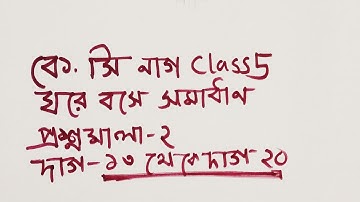 কে. সি নাগ Class 5
ঘরে বসে সমাধান
প্রশ্নমালা - ২
দাগ - ১৩ থেকে দাগ ২০